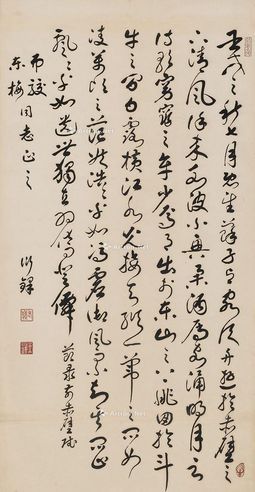 壬戌之秋七月既望蘇子与客泛舟遊於赤壁之
下清風徐来水波不興举酒属客誦明月之
诗歌窈窕之章少焉月出於東山之上徘徊於斗
牛之間白露横江水光接天縱一葦之所如
凌萬頃之茫然浩浩乎如馮虚御風而不知其所止
飄飄乎如遺世獨立羽化而登僊
節录前赤壁賦
东梅
同志正之